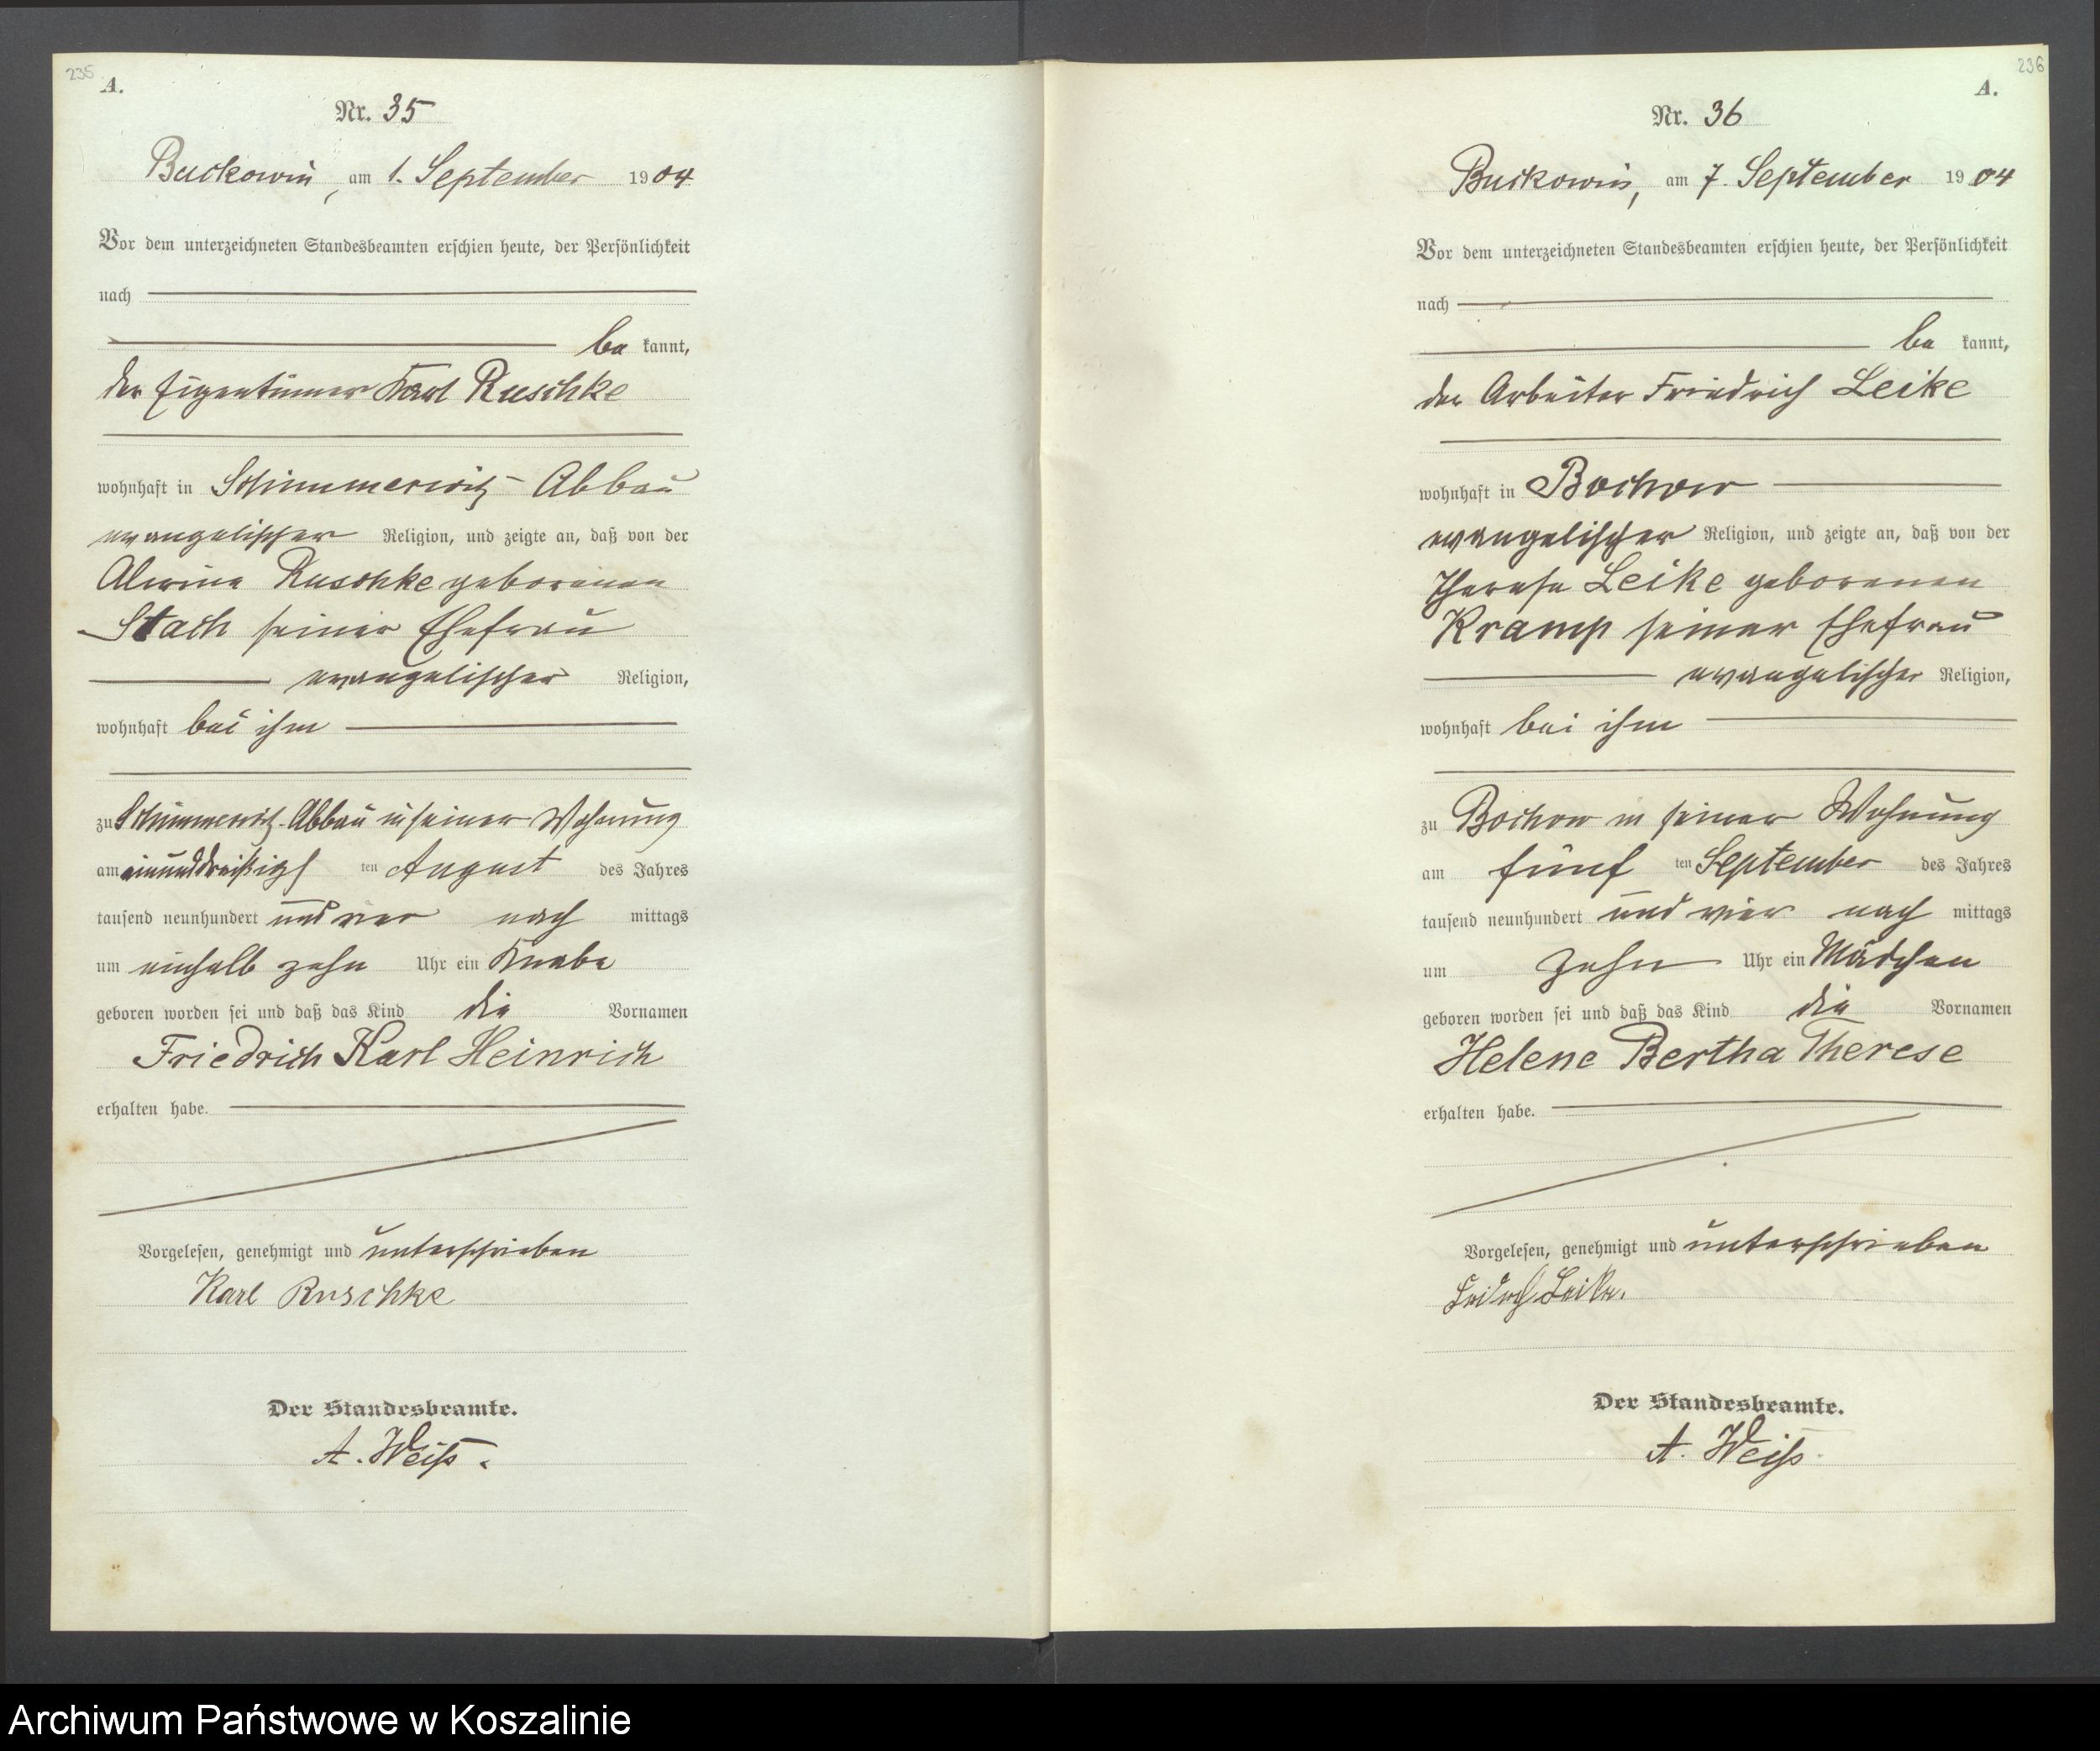 235
A.
Nr. 35
Buckowin, am 1. September 1904
Vor dem unterzeichneten Standesbeamten erschien heute, der Persönlichkeit
nach
be kannt,
der Eigentümer Karl Ruschke
wohnhaft in Schimmerwitz-Abbau
evangelischer Religion, und zeigte an, daß von der
Alwine Ruschke geborenen
Stach seiner Ehefrau
evangelischer Religion,
wohnhaft bei ihm
zu Schimmerwitz-Abbau in seiner Wohnung
am einunddreißigs ten August des Jahres
tausend neunhundert und vier nach mittags
um einhalb zehn Uhr ein Knabe
geboren worden sei und daß das Kind die Vornamen
Friedrich Karl Heinrich
erhalten habe.
Vorgelesen, genehmigt und unterschrieben
Karl Ruschke
Der Standesbeamte.
A. Weiß.
236
A.
Nr. 36
Buckowin, am 7. September 1904
Vor dem unterzeichneten Standesbeamten erschien heute, der Persönlichkeit
nach
be kannt,
der Arbeiter Friedrich Leike
wohnhaft in Bochow
evangelischer Religion, und zeigte an, daß von der
Therese Leike geborenen
Kramp seiner Ehefrau
evangelischer Religion,
wohnhaft bei ihm
zu Bochow in seiner Wohnung
am fünf ten September des Jahres
tausend neunhundert und vier nach mittags
um zehn Uhr ein Mädchen
geboren worden sei und daß das Kind die Vornamen
Helene Bertha Therese
erhalten habe.
Vorgelesen, genehmigt und unterschrieben
Leike.
Der Standesbeamte.
A. Weiß.
Archiwum Państwowe w Koszalinie